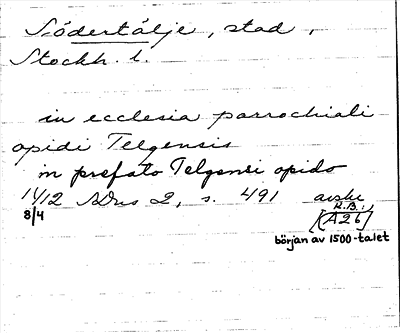 Södertälje, stad,
Stockh. l.
in ecclesia parrochiali
opidi Telgensis
in prefato Telgensi opido
11/12 s. 491 avskr
8/4 R.B.
[A26]
början av 1500-talet